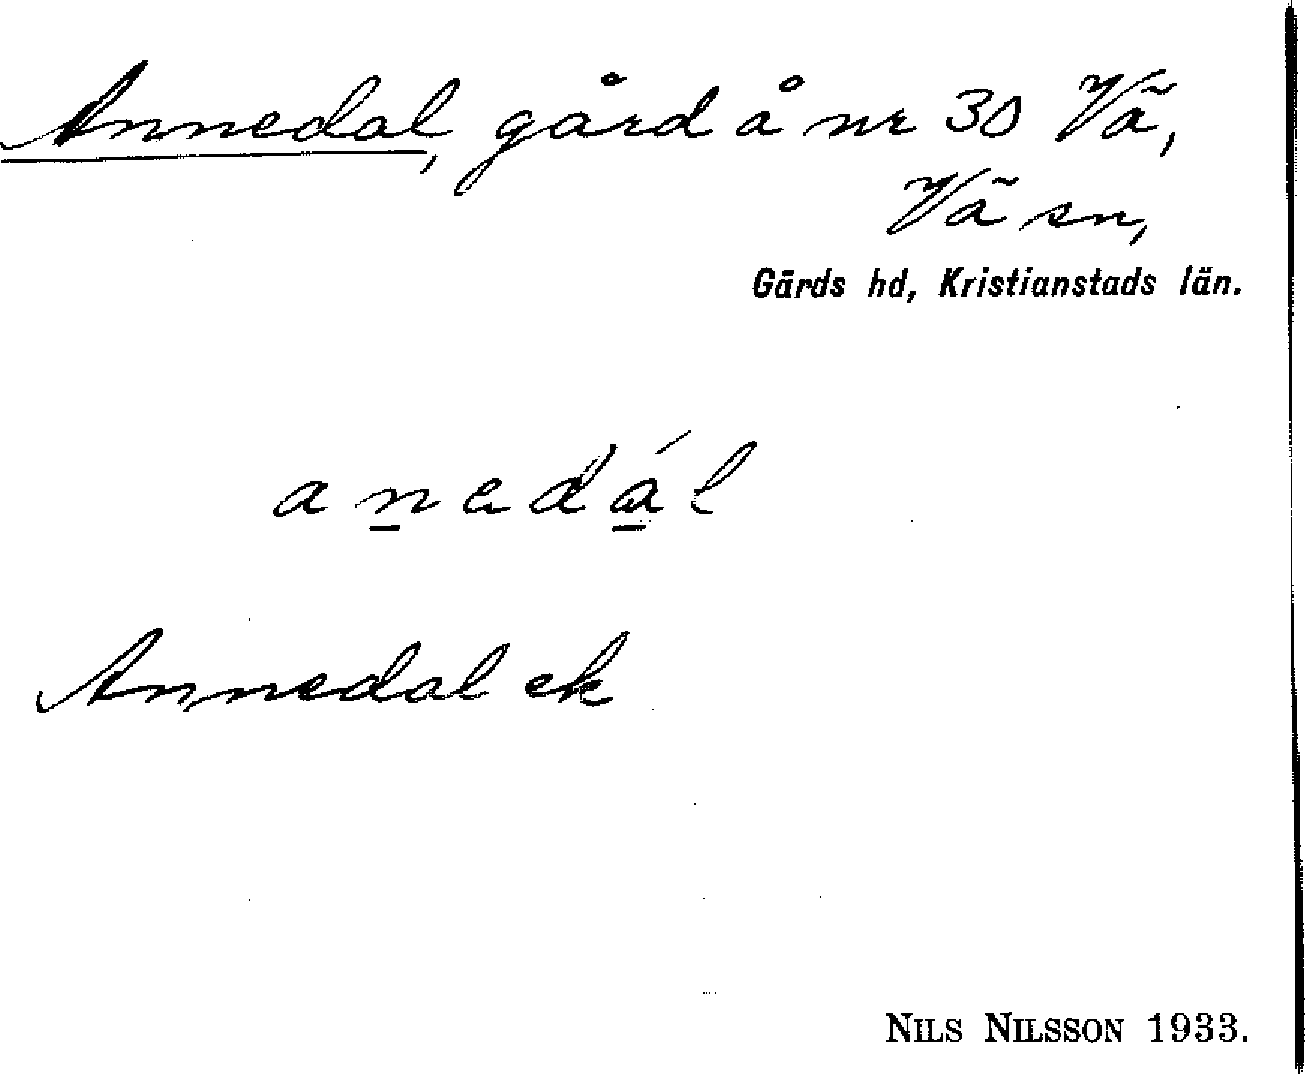 Annedal, gård å nr 30 Vä,
Vä sn,
Gärds hd, Kristianstads län.
anedál
Annedal ek
NILS NILSSON 1933.